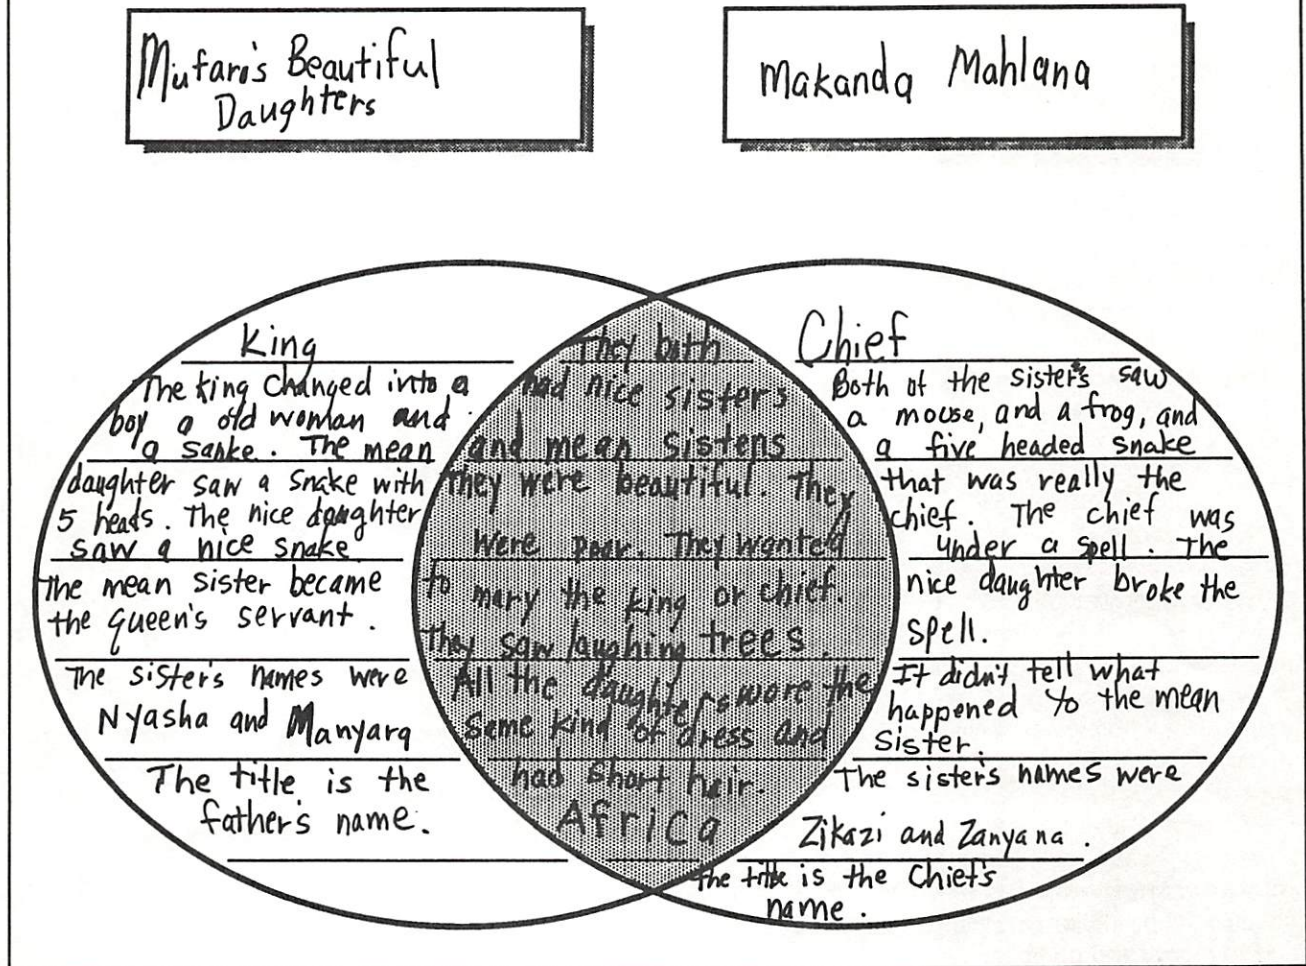 Mufaro's Beautiful
Daughters
Makanda Mahlana
King
The king changed into a
boy a old woman and
a sanke. The mean
daughter saw a snake with
5 heads. The nice daughter
saw a nice snake
the mean sister became
the queen's servant.
The sister's names were
Nyasha and Manyara
The title is the
father's name.
They both
had nice sisters
and mean sistens
They were beautiful. They
were poar. They wanted
to mary the king or chief.
They saw laughing trees.
All the daughters wore the
same kind of dress and
had short hair.
Africa
Chief
Both of the sister's saw
a mouse, and a frog, and
a five headed snake
that was really the
chief. The chief was
under a spell. The
nice daughter broke the
spell.
It didn't tell what
happened to the mean
sister.
The sister's names were
Zikazi and Zanyana.
The title is the Chief's
name.